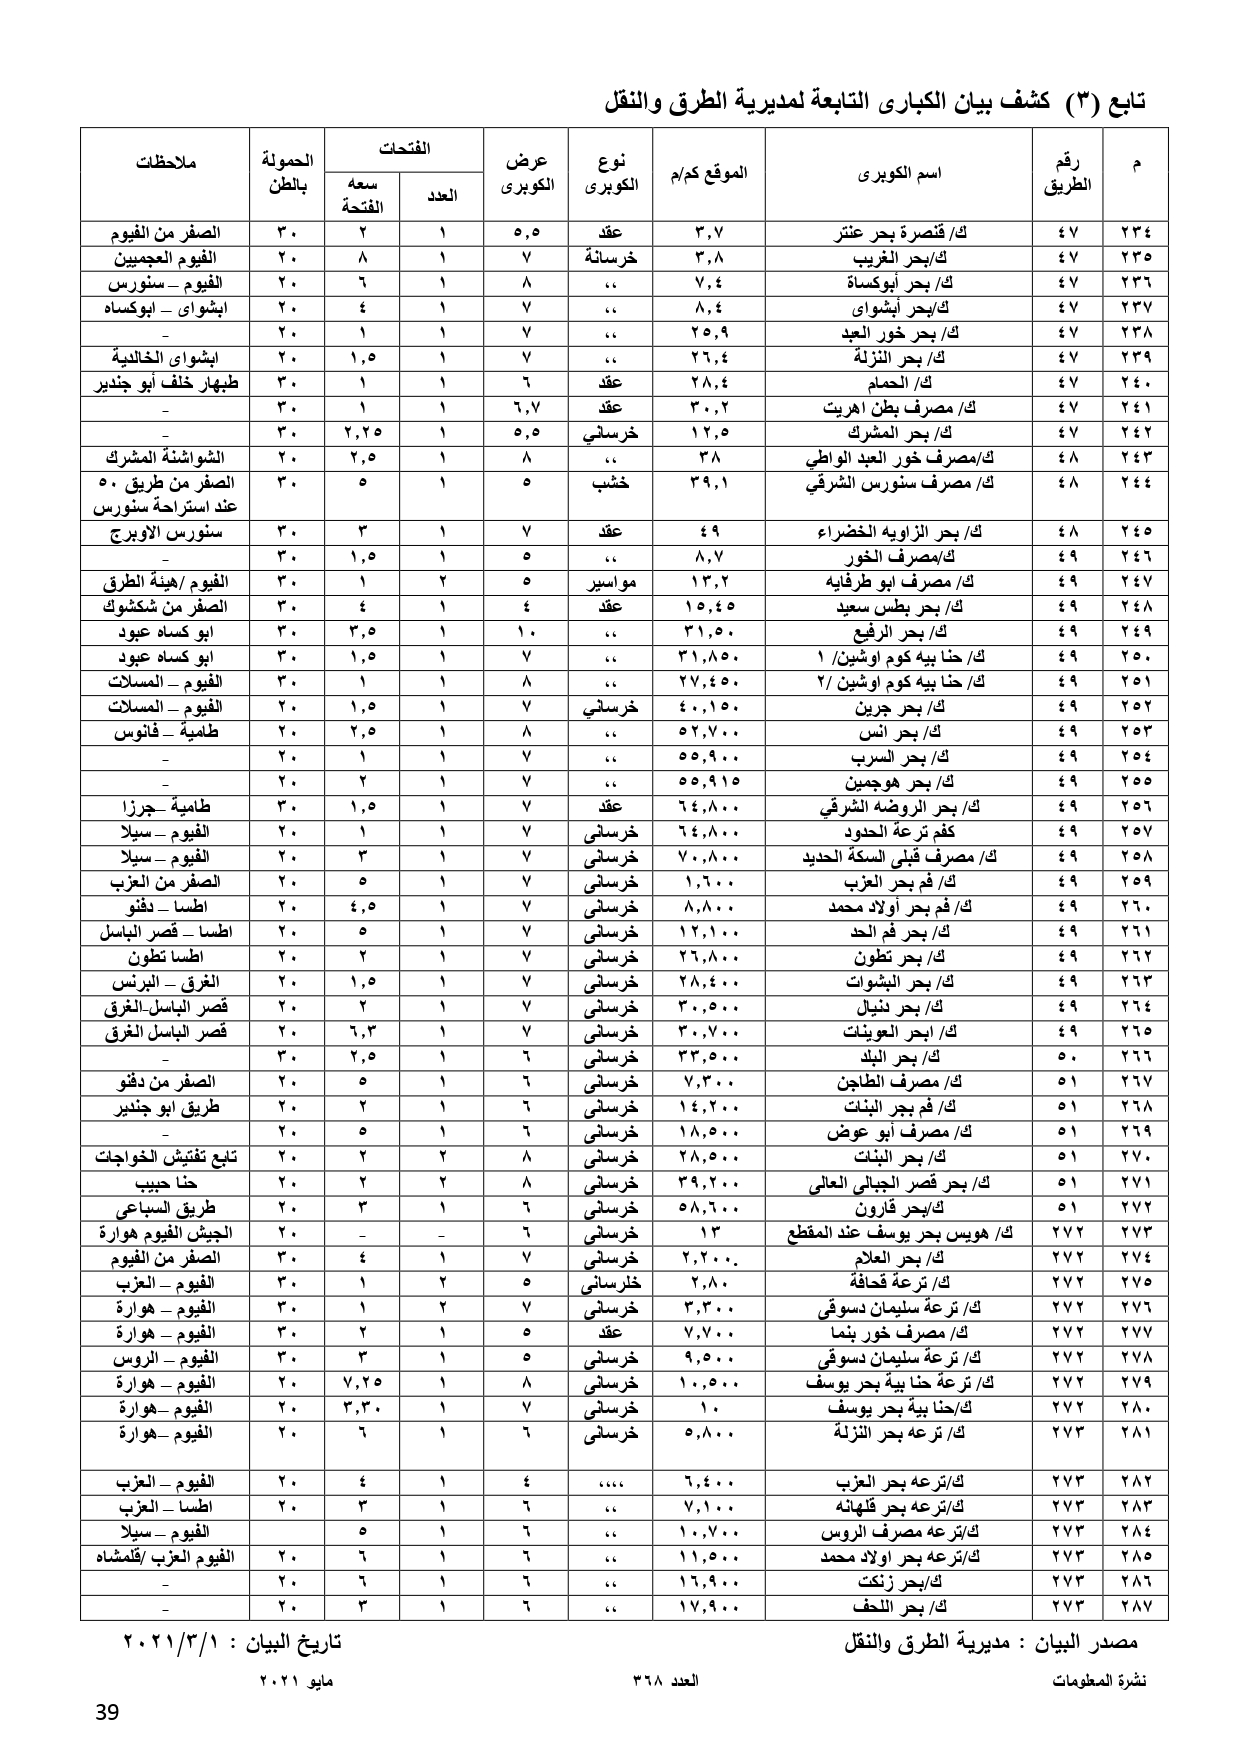 تابع (٣) كشف بيان الكبارى التابعة لمديرية الطرق والنقل
م | رقم الطريق | اسم الكوبرى | الموقع كم/م | نوع الكوبرى | عرض الكوبرى | الفتحات | الحمولة بالطن | ملاحظات
العدد | سعه الفتحة
٢٣٤ | ٤٧ | ك/ قنصرة بحر عنتر | ٣,٧ | عقد | ٥,٥ | ١ | ٢ | ٣٠ | الصفر من الفيوم
٢٣٥ | ٤٧ | ك/بحر الغريب | ٣,٨ | خرسانة | ٧ | ١ | ٨ | ٢٠ | الفيوم العجميين
٢٣٦ | ٤٧ | ك/ بحر أبوكساة | ٧,٤ | ،، | ٨ | ١ | ٦ | ٢٠ | الفيوم – سنورس
٢٣٧ | ٤٧ | ك/بحر أبشواى | ٨,٤ | ،، | ٧ | ١ | ٤ | ٢٠ | ابشواى – ابوكساه
٢٣٨ | ٤٧ | ك/ بحر خور العبد | ٢٥,٩ | ،، | ٧ | ١ | ١ | ٢٠ | -
٢٣٩ | ٤٧ | ك/ بحر النزلة | ٢٦,٤ | ،، | ٧ | ١ | ١,٥ | ٢٠ | ابشواى الخالدية
٢٤٠ | ٤٧ | ك/ الحمام | ٢٨,٤ | عقد | ٦ | ١ | ١ | ٣٠ | طبهار خلف أبو جندير
٢٤١ | ٤٧ | ك/ مصرف بطن اهريت | ٣٠,٢ | عقد | ٦,٧ | ١ | ١ | ٣٠ | -
٢٤٢ | ٤٧ | ك/ بحر المشرك | ١٢,٥ | خرساني | ٥,٥ | ١ | ٢,٢٥ | ٣٠ | -
٢٤٣ | ٤٨ | ك/مصرف خور العبد الواطي | ٣٨ | ،، | ٨ | ١ | ٢,٥ | ٢٠ | الشواشنة المشرك
٢٤٤ | ٤٨ | ك/ مصرف سنورس الشرقي | ٣٩,١ | خشب | ٥ | ١ | ٥ | ٣٠ | الصفر من طريق ٥٠
عند استراحة سنورس
٢٤٥ | ٤٨ | ك/ بحر الزاويه الخضراء | ٤٩ | عقد | ٧ | ١ | ٣ | ٣٠ | سنورس الاوبرج
٢٤٦ | ٤٩ | ك/مصرف الخور | ٨,٧ | ،، | ٥ | ١ | ١,٥ | ٣٠ | -
٢٤٧ | ٤٩ | ك/ مصرف ابو طرفايه | ١٣,٢ | مواسير | ٥ | ٢ | ١ | ٣٠ | الفيوم /هيئة الطرق
٢٤٨ | ٤٩ | ك/ بحر بطس سعيد | ١٥,٤٥ | عقد | ٤ | ١ | ٤ | ٣٠ | الصفر من شكشوك
٢٤٩ | ٤٩ | ك/ بحر الرفيع | ٣١,٥٠ | ،، | ١٠ | ١ | ٣,٥ | ٣٠ | ابو كساه عبود
٢٥٠ | ٤٩ | ك/ حنا بيه كوم اوشين/ ١ | ٣١,٨٥٠ | ،، | ٧ | ١ | ١,٥ | ٣٠ | ابو كساه عبود
٢٥١ | ٤٩ | ك/ حنا بيه كوم اوشين /٢ | ٢٧,٤٥٠ | ،، | ٨ | ١ | ١ | ٣٠ | الفيوم – المسلات
٢٥٢ | ٤٩ | ك/ بحر جرين | ٤٠,١٥٠ | خرساني | ٧ | ١ | ١,٥ | ٢٠ | الفيوم – المسلات
٢٥٣ | ٤٩ | ك/ بحر انس | ٥٢,٧٠٠ | ،، | ٨ | ١ | ٢,٥ | ٢٠ | طامية – فانوس
٢٥٤ | ٤٩ | ك/ بحر السرب | ٥٥,٩٠٠ | ،، | ٧ | ١ | ١ | ٢٠ | -
٢٥٥ | ٤٩ | ك/ بحر هوجمين | ٥٥,٩١٥ | ،، | ٧ | ١ | ٢ | ٢٠ | -
٢٥٦ | ٤٩ | ك/ بحر الروضه الشرقي | ٦٤,٨٠٠ | عقد | ٧ | ١ | ١,٥ | ٣٠ | طامية –جرزا
٢٥٧ | ٤٩ | كفم ترعة الحدود | ٦٤,٨٠٠ | خرسانى | ٧ | ١ | ١ | ٢٠ | الفيوم – سيلا
٢٥٨ | ٤٩ | ك/ مصرف قبلى السكة الحديد | ٧٠,٨٠٠ | خرسانى | ٧ | ١ | ٣ | ٢٠ | الفيوم – سيلا
٢٥٩ | ٤٩ | ك/ فم بحر العزب | ١,٦٠٠ | خرسانى | ٧ | ١ | ٥ | ٢٠ | الصفر من العزب
٢٦٠ | ٤٩ | ك/ فم بحر أولاد محمد | ٨,٨٠٠ | خرسانى | ٧ | ١ | ٤,٥ | ٢٠ | اطسا – دفنو
٢٦١ | ٤٩ | ك/ بحر فم الحد | ١٢,١٠٠ | خرسانى | ٧ | ١ | ٥ | ٢٠ | اطسا – قصر الباسل
٢٦٢ | ٤٩ | ك/ بحر تطون | ٢٦,٨٠٠ | خرسانى | ٧ | ١ | ٢ | ٢٠ | اطسا تطون
٢٦٣ | ٤٩ | ك/ بحر البشوات | ٢٨,٤٠٠ | خرسانى | ٧ | ١ | ١,٥ | ٢٠ | الغرق – البرنس
٢٦٤ | ٤٩ | ك/ بحر دنيال | ٣٠,٥٠٠ | خرسانى | ٧ | ١ | ٢ | ٢٠ | قصر الباسل-الغرق
٢٦٥ | ٤٩ | ك/ ابحر العوينات | ٣٠,٧٠٠ | خرسانى | ٧ | ١ | ٦,٣ | ٢٠ | قصر الباسل الغرق
٢٦٦ | ٥٠ | ك/ بحر البلد | ٣٣,٥٠٠ | خرسانى | ٦ | ١ | ٢,٥ | ٣٠ | -
٢٦٧ | ٥١ | ك/ مصرف الطاجن | ٧,٣٠٠ | خرسانى | ٦ | ١ | ٥ | ٢٠ | الصفر من دفنو
٢٦٨ | ٥١ | ك/ فم بجر البنات | ١٤,٢٠٠ | خرسانى | ٦ | ١ | ٢ | ٢٠ | طريق ابو جندير
٢٦٩ | ٥١ | ك/ مصرف أبو عوض | ١٨,٥٠٠ | خرسانى | ٦ | ١ | ٥ | ٢٠ | -
٢٧٠ | ٥١ | ك/ بحر البنات | ٢٨,٥٠٠ | خرسانى | ٨ | ٢ | ٢ | ٢٠ | تابع تفتيش الخواجات
٢٧١ | ٥١ | ك/ بحر قصر الجبالى العالى | ٣٩,٢٠٠ | خرسانى | ٨ | ٢ | ٢ | ٢٠ | حنا حبيب
٢٧٢ | ٥١ | ك/بحر قارون | ٥٨,٦٠٠ | خرسانى | ٦ | ١ | ٣ | ٢٠ | طريق السباعى
٢٧٣ | ٢٧٢ | ك/ هويس بحر يوسف عند المقطع | ١٣ | خرسانى | ٦ | - | - | ٢٠ | الجيش الفيوم هوارة
٢٧٤ | ٢٧٢ | ك/ بحر العلام | ٢,٢٠٠. | خرسانى | ٧ | ١ | ٤ | ٣٠ | الصفر من الفيوم
٢٧٥ | ٢٧٢ | ك/ ترعة قحافة | ٢,٨٠ | خلرسانى | ٥ | ٢ | ١ | ٣٠ | الفيوم – العزب
٢٧٦ | ٢٧٢ | ك/ ترعة سليمان دسوقى | ٣,٣٠٠ | خرسانى | ٧ | ٢ | ١ | ٣٠ | الفيوم – هوارة
٢٧٧ | ٢٧٢ | ك/ مصرف خور بنما | ٧,٧٠٠ | عقد | ٥ | ١ | ٢ | ٣٠ | الفيوم – هوارة
٢٧٨ | ٢٧٢ | ك/ ترعة سليمان دسوقى | ٩,٥٠٠ | خرسانى | ٥ | ١ | ٣ | ٣٠ | الفيوم – الروس
٢٧٩ | ٢٧٢ | ك/ ترعة حنا بية بحر يوسف | ١٠,٥٠٠ | خرسانى | ٨ | ١ | ٧,٢٥ | ٢٠ | الفيوم – هوارة
٢٨٠ | ٢٧٢ | ك/حنا بية بحر يوسف | ١٠ | خرسانى | ٧ | ١ | ٣,٣٠ | ٢٠ | الفيوم –هوارة
٢٨١ | ٢٧٣ | ك/ ترعه بحر النزلة | ٥,٨٠٠ | خرسانى | ٦ | ١ | ٦ | ٢٠ | الفيوم –هوارة
٢٨٢ | ٢٧٣ | ك/ترعه بحر العزب | ٦,٤٠٠ | ،،،، | ٤ | ١ | ٤ | ٢٠ | الفيوم – العزب
٢٨٣ | ٢٧٣ | ك/ترعه بحر قلهانه | ٧,١٠٠ | ،، | ٦ | ١ | ٣ | ٢٠ | اطسا – العزب
٢٨٤ | ٢٧٣ | ك/ترعه مصرف الروس | ١٠,٧٠٠ | ،، | ٦ | ١ | ٥ | الفيوم – سيلا
٢٨٥ | ٢٧٣ | ك/ترعه بحر اولاد محمد | ١١,٥٠٠ | ،، | ٦ | ١ | ٦ | ٢٠ | الفيوم العزب /قلمشاه
٢٨٦ | ٢٧٣ | ك/بحر زنكت | ١٦,٩٠٠ | ،، | ٦ | ١ | ٦ | ٢٠ | -
٢٨٧ | ٢٧٣ | ك/ بحر اللحف | ١٧,٩٠٠ | ،، | ٦ | ١ | ٣ | ٢٠ | -
مصدر البيان : مديرية الطرق والنقل تاريخ البيان : ٢٠٢١/٣/١
نشرة المعلومات العدد ٣٦٨ مايو ٢٠٢١
39